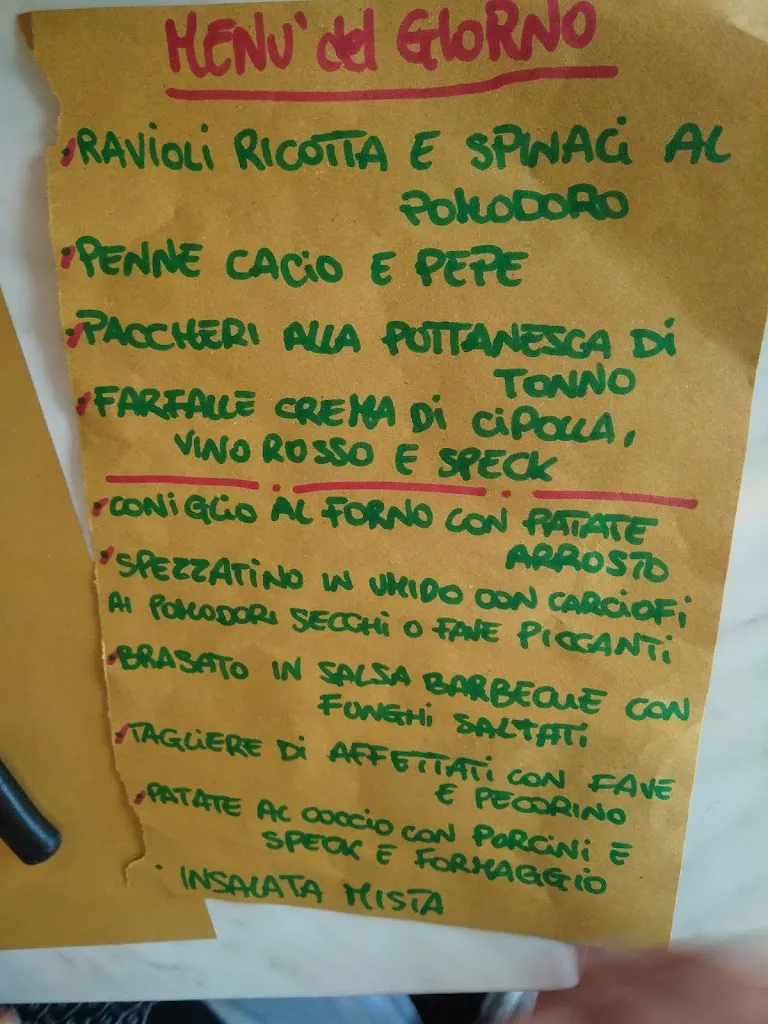 MENU' del GIORNO
RAVIOLI RICOTTA E SPINACI AL
POMODORO
PENNE CACIO E PEPE
PACCHERI ALLA PUTTANESCA DI
TONNO
FARFALLE CREMA DI CIPOLLA,
VINO ROSSO E SPECK
CONIGLIO AL FORNO CON PATATE
ARROSTO
SPEZZATINO IN UMIDO CON CARCIOFI
AI POMODORI SECCHI O FAVE PICCANTI
BRASATO IN SALSA BARBECUE CON
FUNGHI SALTATI
TAGLIERE DI AFFETTATI CON FAVE
E PECORINO
PATATE AL COCCIO CON PORCINI E
SPECK E FORMAGGIO
INSALATA MISTA